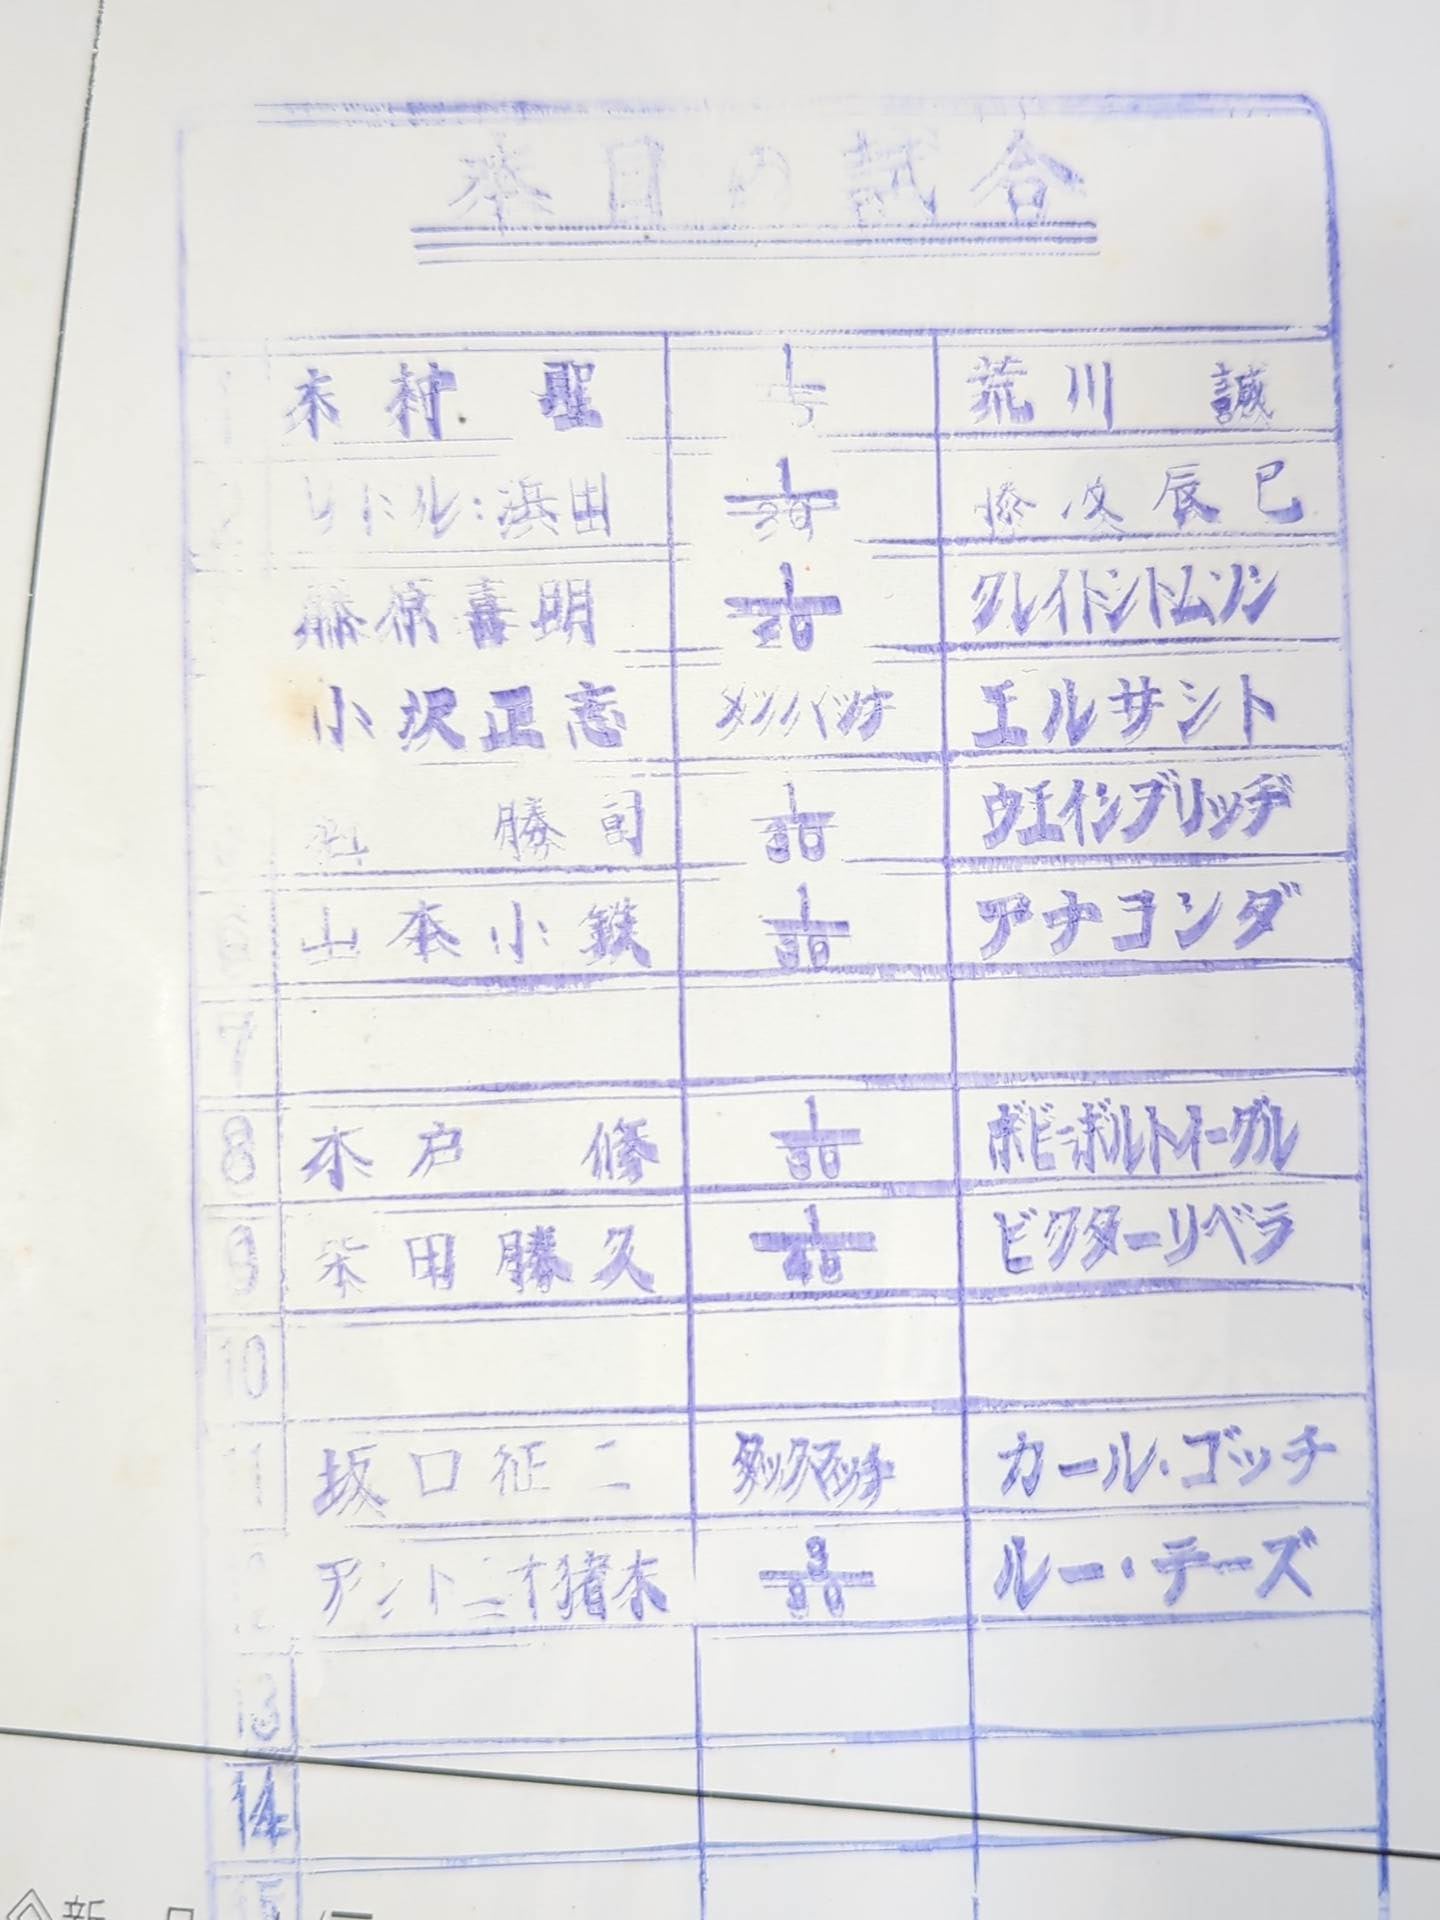 本日の試合
1 木村 聖 1/15 荒川 誠
2 リトル・浜田 1/20 藤波辰巳
藤原喜明 1/20 クレイトントムソン
小沢正志 メンバッチ エルサント
勝司 1/30 ウエインブリッヂ
6 山本小鉄 1/30 アナコンダ
7
8 木戸 修 1/30 ボビーボルトイーグル
9 柴田勝久 1/45 ビクターリベラ
10
11 坂口征二 タッグマッチ カール・ゴッチ
アントニオ猪木 3/90 ルー・テーズ
13
14
15